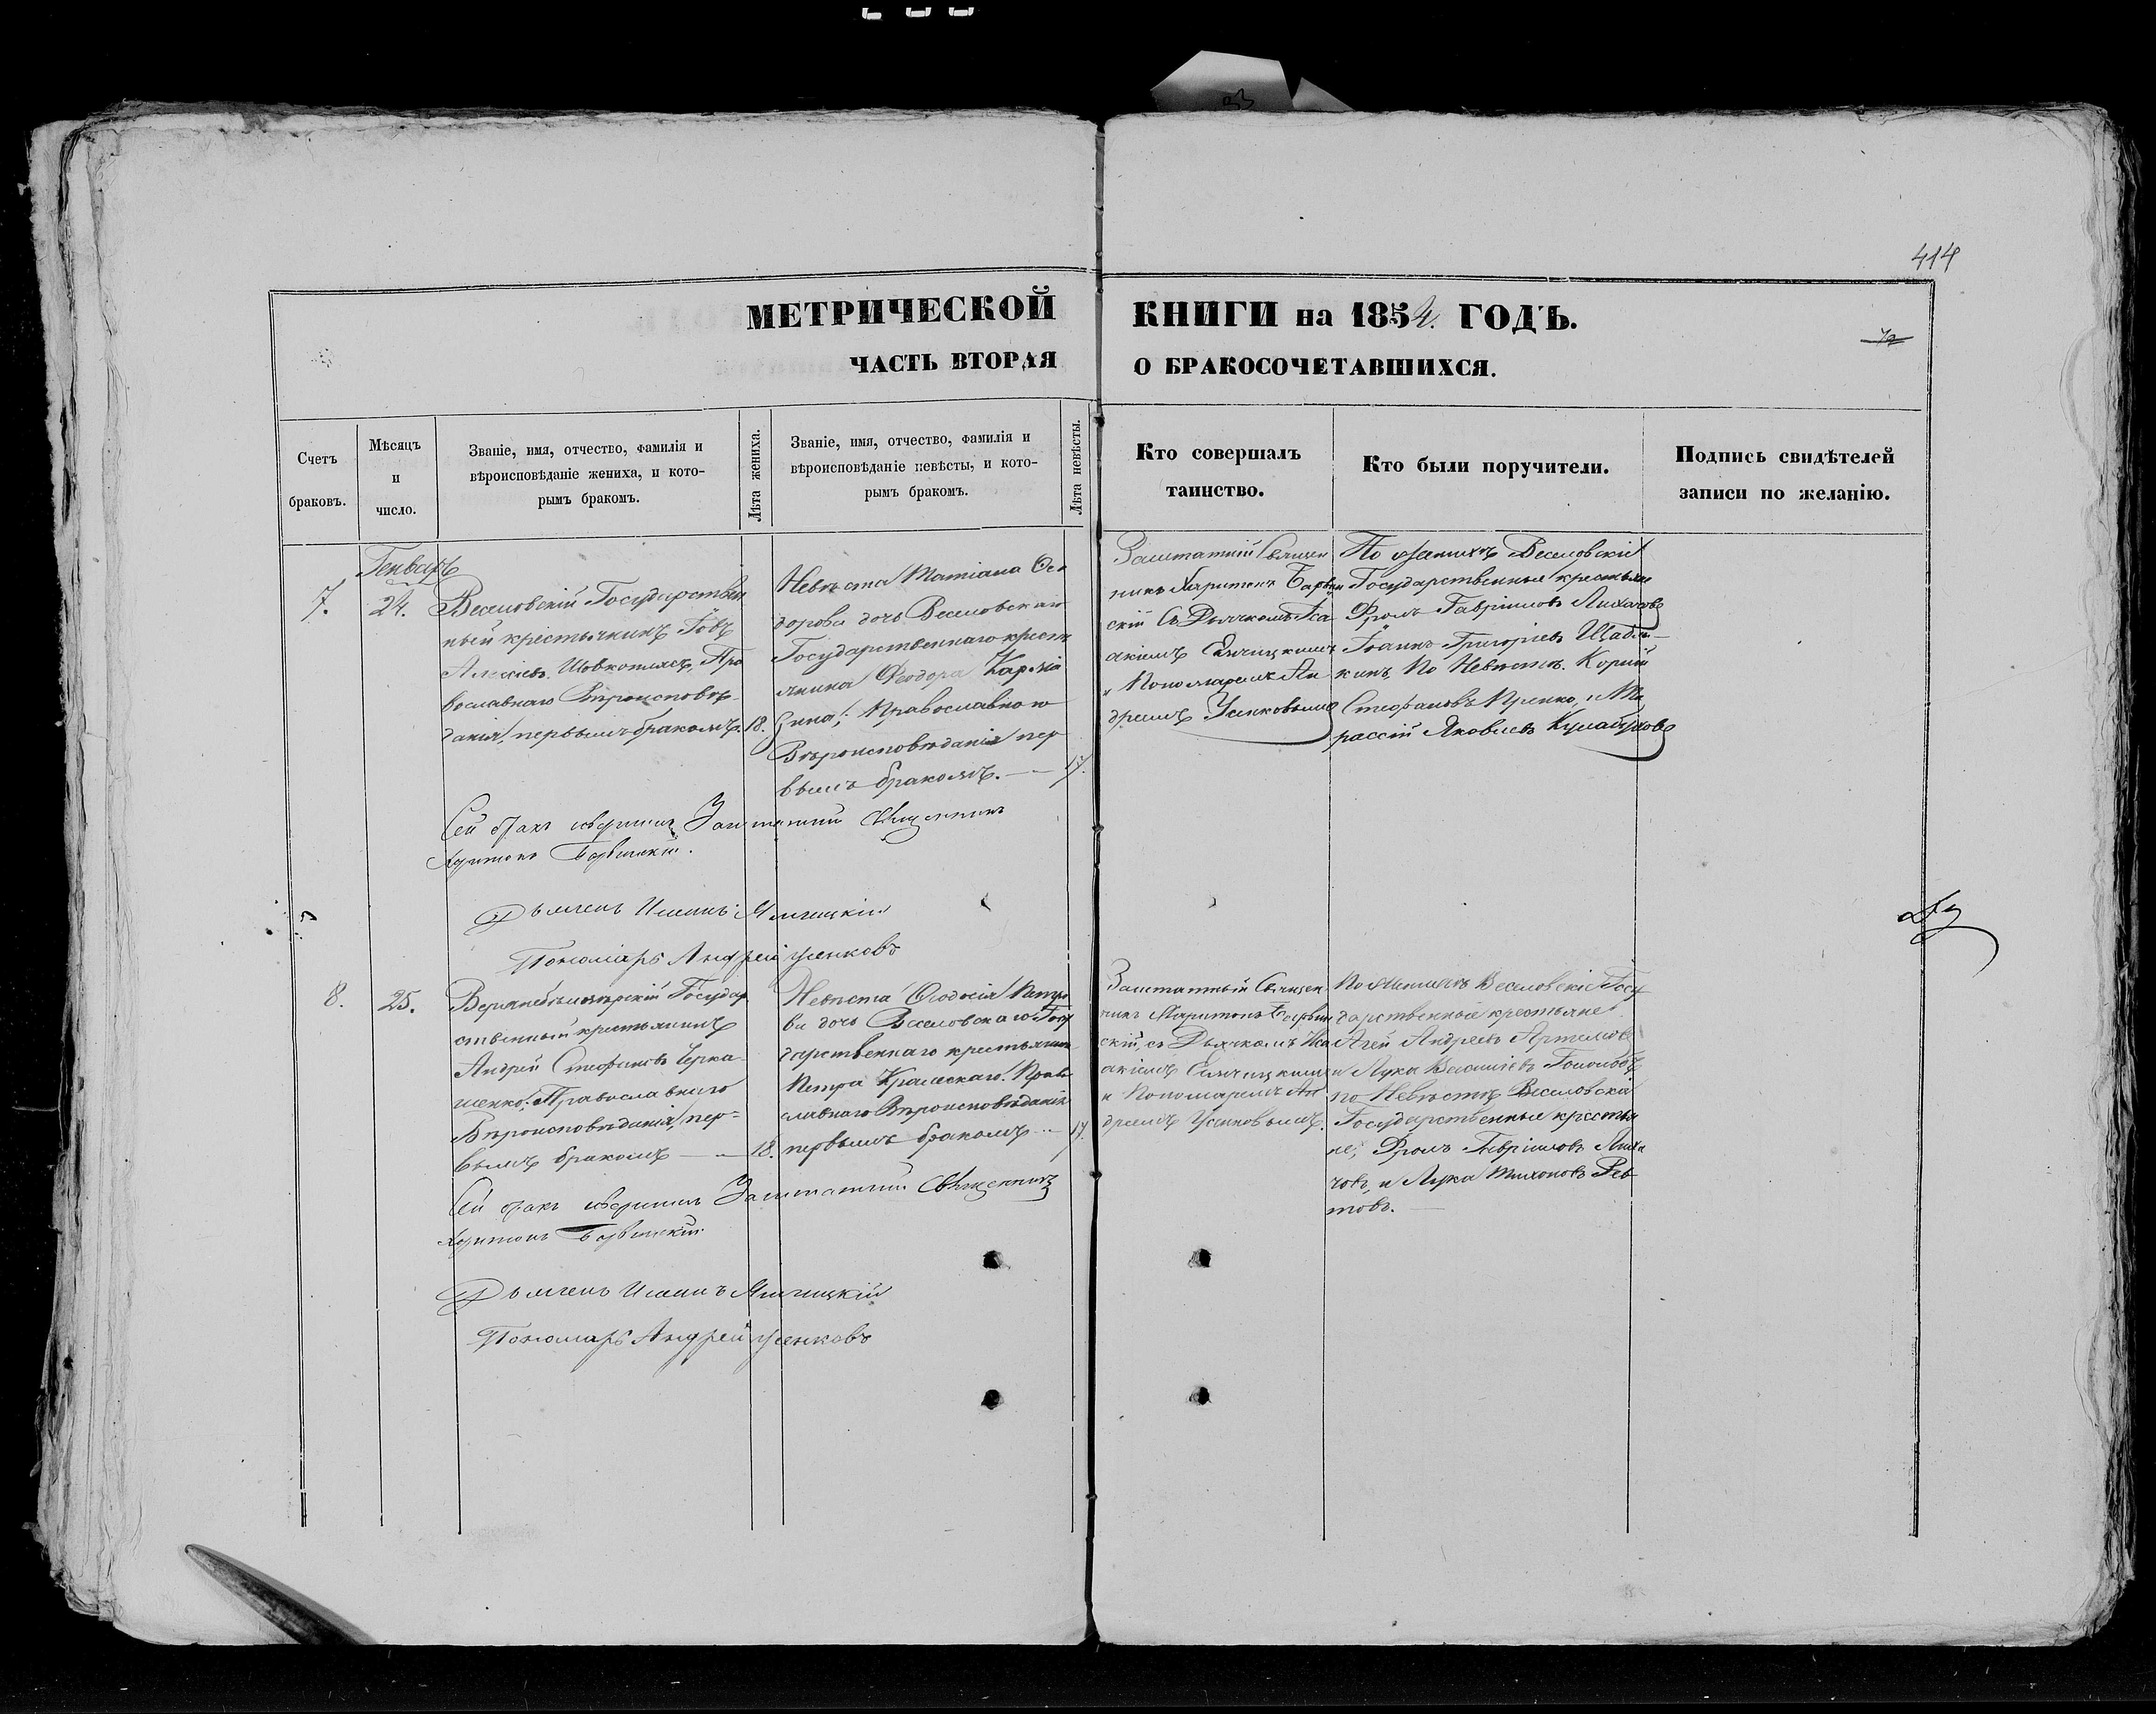 414
МЕТРИЧЕСКОЙ КНИГИ на 1854. ГОДЪ.
ЧАСТЬ ВТОРАЯ О БРАКОСОЧЕТАВШИХСЯ.
Счетъ браковъ.
Мѣсяцъ и число.
Званіе, имя, отчество, фамилія и
вѣроисповѣданіе жениха, и кото-
рымъ бракомъ.
Лѣта жениха.
Званіе, имя, отчество, фамилія и
вѣроисповѣданіе невѣсты, и кото-
рымъ бракомъ.
Лѣта невѣсты.
Кто совершалъ
таинство.
Кто были поручители.
Подпись свидѣтелей
записи по желанію.
Генварь
7.
24.
Веселовскій Государствен
ный крестьянинъ Іовъ
Алексіевъ Шовкоплясъ, Пра
вославнаго Вѣроисповѣ
данія, первымъ бракомъ.
18.
Невѣста Татіана Ѳео
дорова дочь Веселовскаго
Государственнаго кресть
янина Ѳеодора
Православнаго
Вѣроисповѣданія пер
вымъ бракомъ.
17.
Заштатный Священ
никъ Харитонъ Барвин
скій съ Дьячкомъ Іоа
акимъ
и Пономаремъ Ан
дреемъ Усенковымъ
По Женихѣ Веселовскіи
Государственные крестьяне
Фролъ Гавріиловъ Лихачовъ
Іоаннъ Григоріевъ Щабль-
кинъ, По Невѣстѣ. Корній
Стефановъ и Та
рассій Яковлевъ
Сей бракъ совершилъ Заштатный Священникъ
Харитонъ Барвинскій.
Дьячекъ
Пономарь Андрей Усенковъ
8.
25.
Государ
ственный крестьянинъ
Андрей Стефановъ Черка
шенко, Православнаго
Вѣроисповѣданія, пер=
вымъ бракомъ
18.
Невѣста Ѳеодосія Петро
ва дочь Веселовскаго Госу
дарственнаго крестьянина
Петра Право
славнаго Вѣроисповѣданія
первымъ бракомъ
17.
Заштатный Священ
никъ Харитонъ Барвин
скій, съ Дьячкомъ Іоа
акимъ
и Пономаремъ Ан
дреемъ Усенковымъ.
По Женихѣ Веселовскіе Госу
дарственные крестьяне
Агей Андреевъ Артемовъ
и Лука Василіевъ
по Невѣстѣ Веселовскіе
Государственные крестья
не, Фролъ Гавріиловъ Лиха
човъ, и Лука Тихоновъ Рев
товъ.
Сей бракъ совершилъ Заштатный Священникъ
Харитонъ Барвинскій
Дьячекъ
Пономарь Андрей Усенковъ